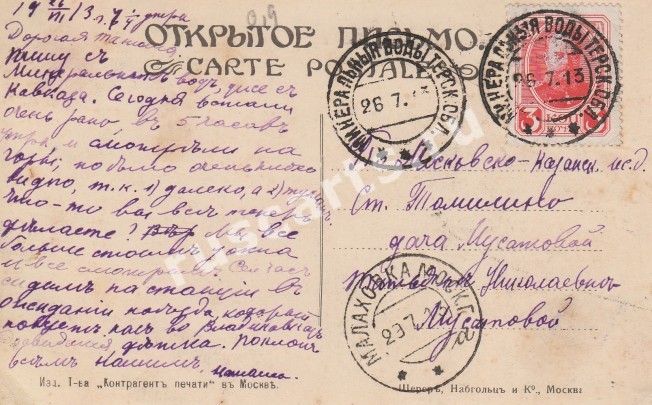 19 26/VII 13 г. 7 ч. утра
ОТКРЫТОЕ ПИСЬМО.
CARTE POSTALE
Дорогая
пишу съ
Минеральныхъ водъ, уже съ
Кавказа. Сегодня встали
очень рано въ 5 часовъ
утра, и смотрѣли на
горы; но было очень плохо
видно, т. к. 1) далеко, а 2) туманъ.
Что-то вы всѣ теперь
дѣлаете? мы все
больше стоимъ у окна
и все смотримъ. Сейчасъ
сидимъ на станціи въ
ожиданіи поѣзда, который
повезетъ насъ во Владикавказъ
поклонъ
всѣмъ нашимъ.
МИНЕРАЛЬНЫЯ ВОДЫ ТЕРСК. ОБЛ.
26.7.13
МИНЕРАЛЬНЫЯ ВОДЫ ТЕРСК. ОБЛ.
26.7.13
3 КОП.
Московско-Казанск. ж. д.
Ст. Томилино
дача Мусатовой
Николаевнѣ
Мусатовой
МАЛАХОВКА МОСК. Г.
29.7.13
а
russcarts.ru
Изд. Т-ва „Контрагентъ печати" въ Москвѣ.
Шереръ, Набгольцъ и Ко., Москва